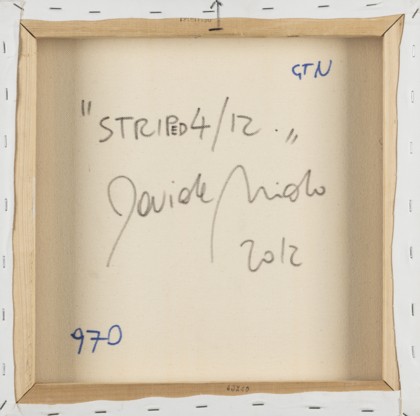 GTN
"STRIPED 4/12."
Davide Nido
2012
970